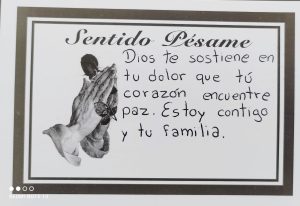 Sentido Pésame
Dios te sostiene en
tu dolor que tú
corazón encuentre
paz. Estoy contigo
y tu familia.